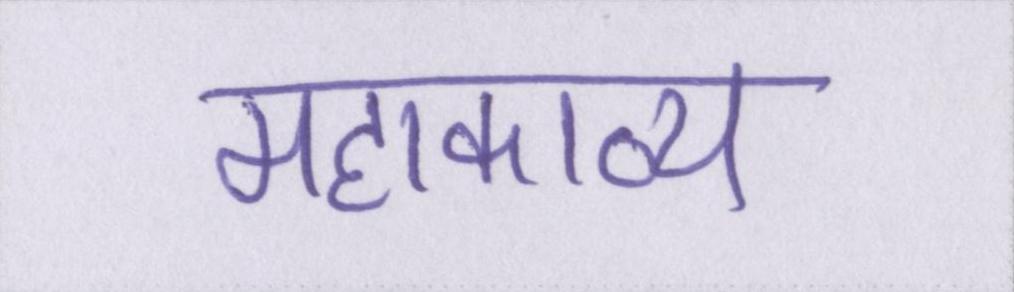 महाकाव्य